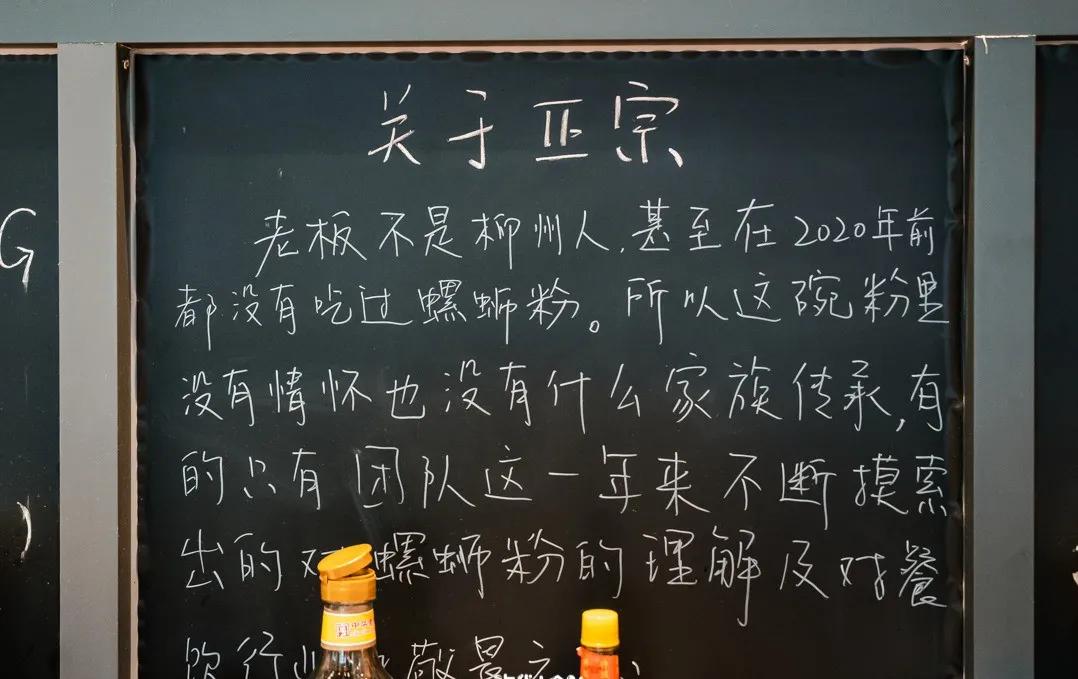 关于正宗
老板不是柳州人,甚至在2020年前
都没有吃过螺蛳粉。所以这碗粉里
没有情怀也没有什么家族传承,有
的只有团队这一年来不断摸索
出的对螺蛳粉的理解及对餐
饮行业敬畏
G
)